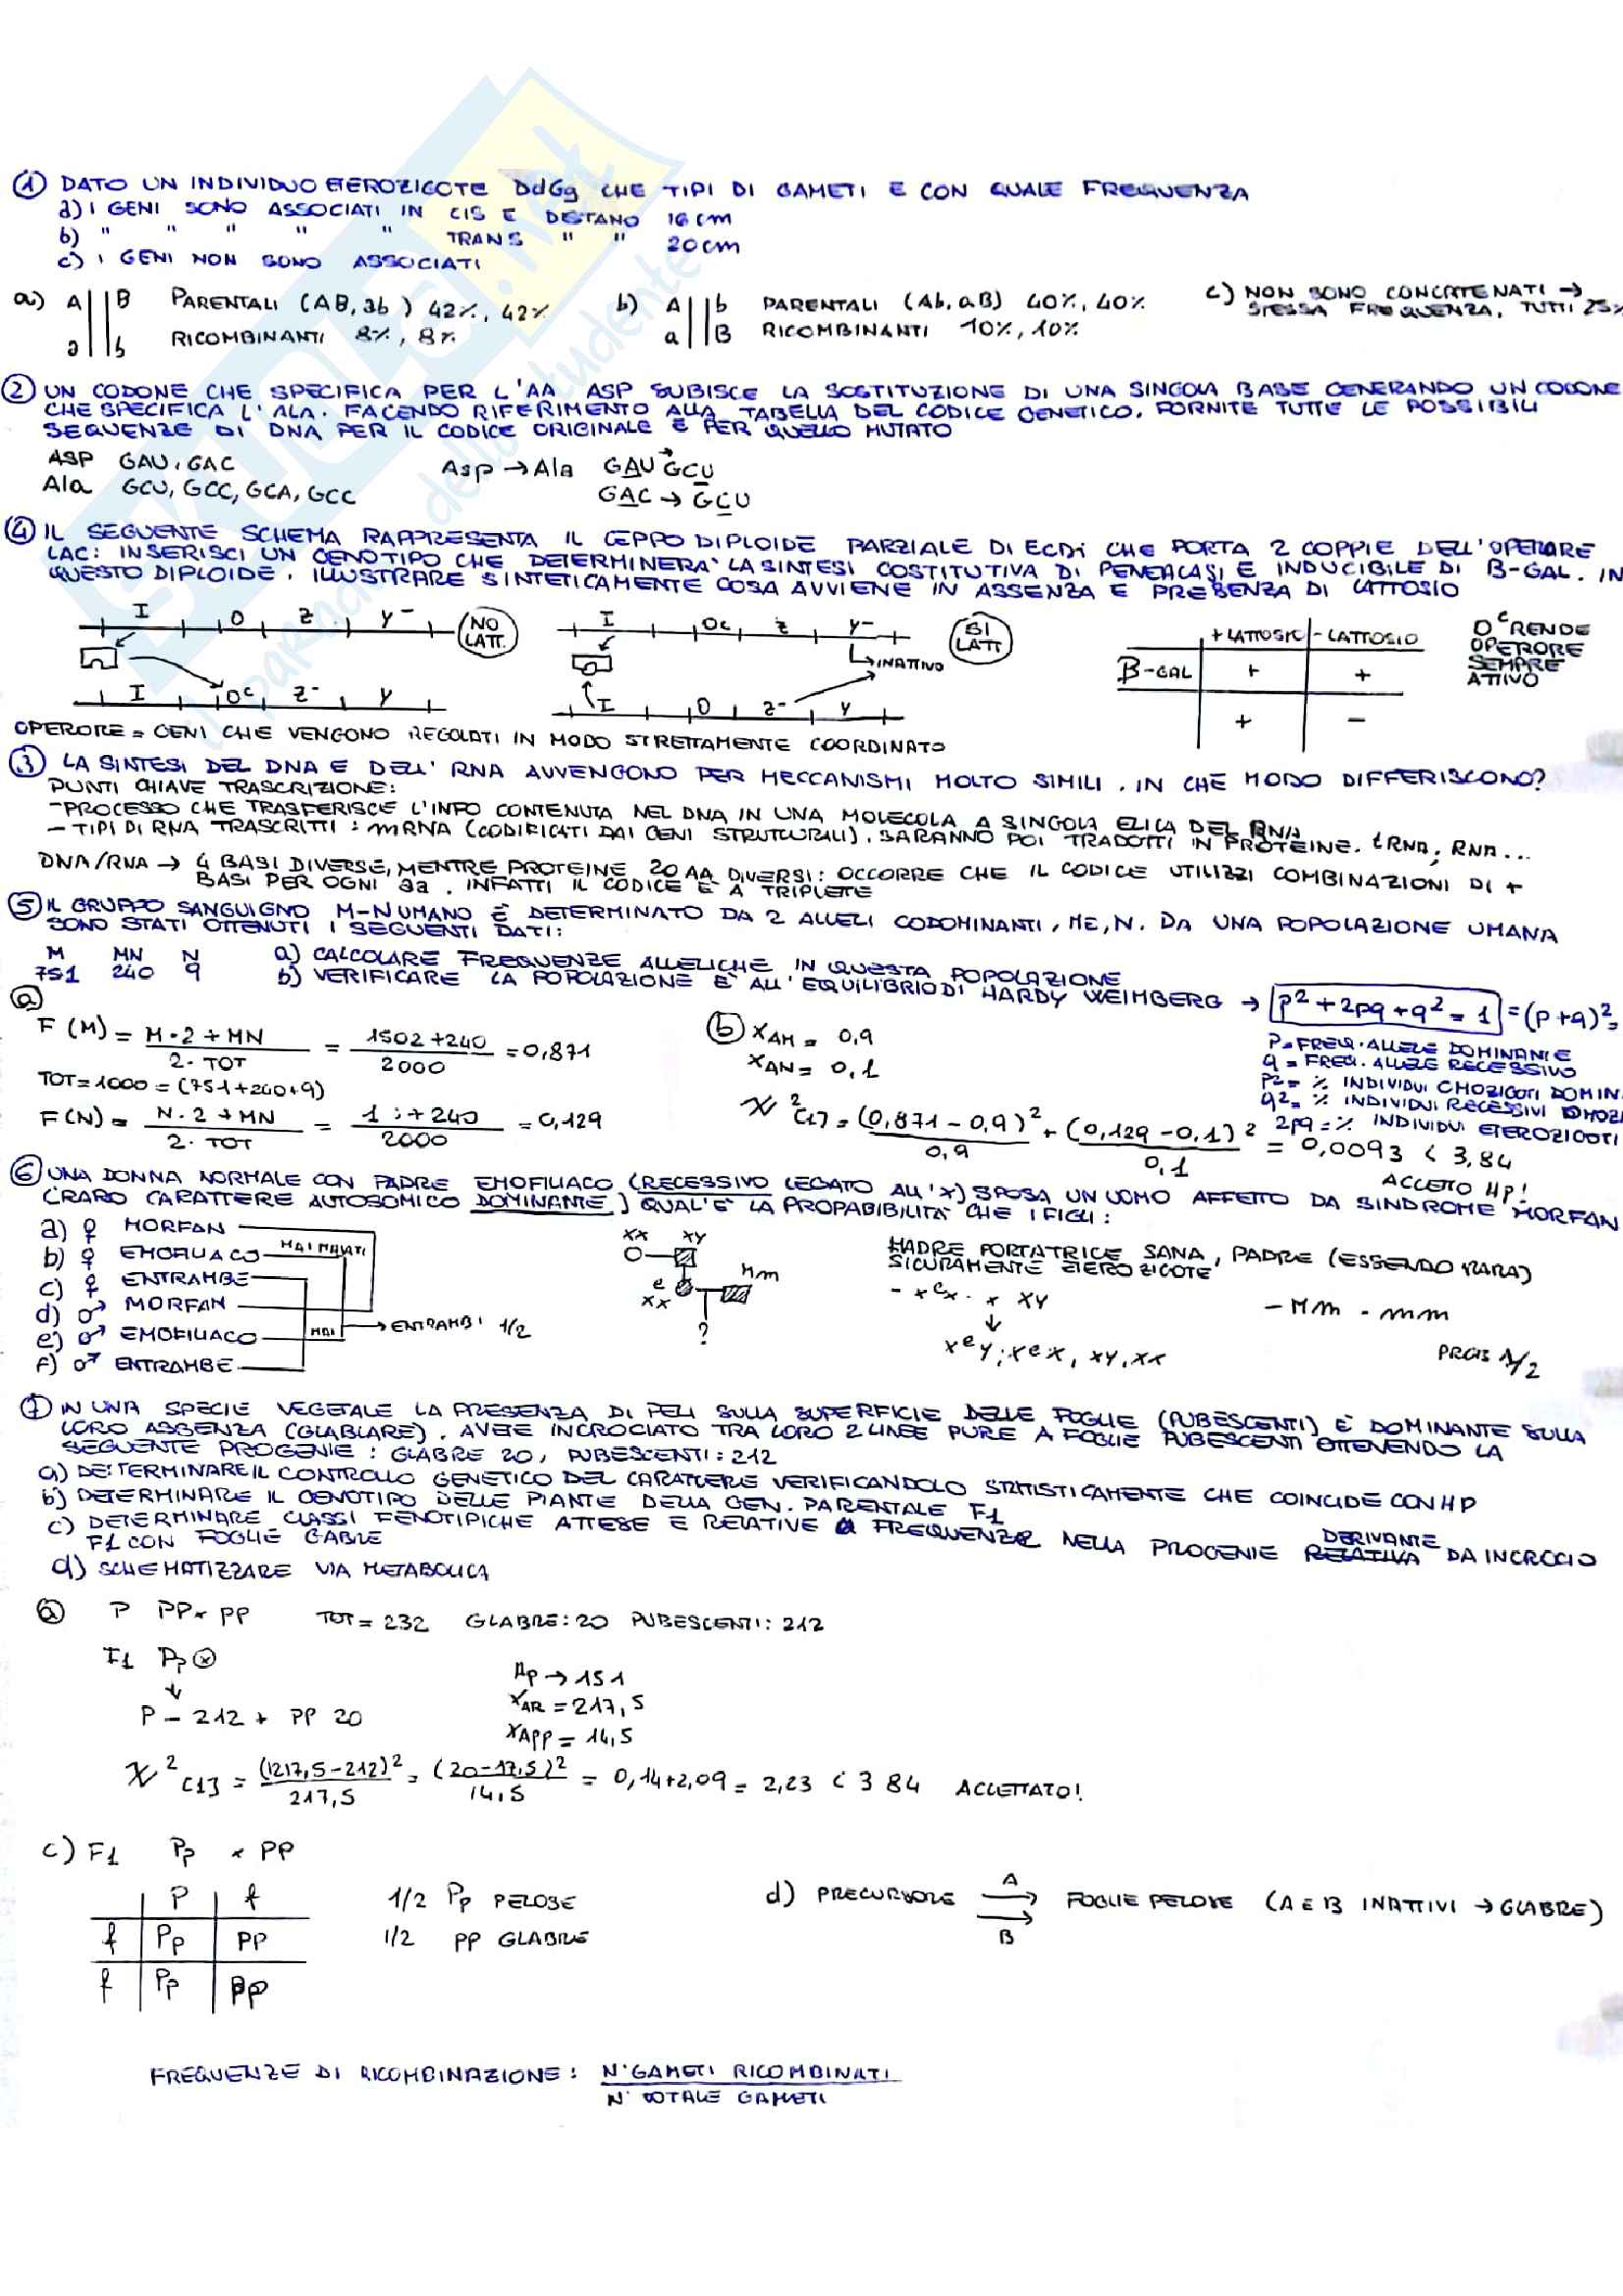 ① DATO UN INDIVIDUO ETEROZIGOTE DdGg CHE TIPI DI GAMETI E CON QUALE FREQUENZA
a) I GENI SONO ASSOCIATI IN CIS E DISTANO 16 cm
b) " " " " " TRANS " " 20cm
c) I GENI NON SONO ASSOCIATI
a) A || B PARENTALI (AB, ab) 42%, 42%
a || b RICOMBINANTI 8%, 8%
b) A || b PARENTALI (Ab, aB) 40%, 40%
a || B RICOMBINANTI 10%, 10%
c) NON SONO CONCATENATI →
STESSA FREQUENZA, TUTTI 25%
② UN CODONE CHE SPECIFICA PER L'AA ASP SUBISCE LA SOSTITUZIONE DI UNA SINGOLA BASE GENERANDO UN CODONE
CHE SPECIFICA L'ALA. FACENDO RIFERIMENTO ALLA TABELLA DEL CODICE GENETICO. FORNITE TUTTE LE POSSIBILI
SEQUENZE DI DNA PER IL CODICE ORIGINALE E PER QUELLO MUTATO
ASP GAU, GAC
Ala GCU, GCC, GCA, GCC
Asp → Ala GAU → GCU
GAC → GCU
④ IL SEGUENTE SCHEMA RAPPRESENTA IL CEPPO DIPLOIDE PARZIALE DI ECOI CHE PORTA 2 COPPIE DELL'OPERORE
LAC: INSERISCI UN GENOTIPO CHE DETERMINERA' LA SINTESI COSTITUTIVA DI PENEACASI E INDUCIBILE DI B-GAL. IN
QUESTO DIPLOIDE. ILLUSTRARE SINTETICAMENTE COSA AVVIENE IN ASSENZA E PRESENZA DI LATTOSIO
I O Z Y- NO LATT.
I Oc Z- Y
I Oc Z Y- SI LATT
→ INATTIVO
I O Z- Y
+ LATTOSIO - LATTOSIO
B-GAL + +
+ -
Oc RENDE
OPERORE
SEMPRE
ATTIVO
OPERORE = GENI CHE VENGONO REGOLATI IN MODO STRETTAMENTE COORDINATO
③ LA SINTESI DEL DNA E DELL'RNA AVVENGONO PER MECCANISMI MOLTO SIMILI. IN CHE MODO DIFFERISCONO?
PUNTI CHIAVE TRASCRIZIONE:
- PROCESSO CHE TRASFERISCE L'INFO CONTENUTA NEL DNA IN UNA MOLECOLA A SINGOLA ELICA DEL RNA
- TIPI DI RNA TRASCRITTI: mRNA (CODIFICATI DAI GENI STRUTTURALI). SARANNO POI TRADOTTI IN PROTEINE. tRNA; RNA...
DNA/RNA → 4 BASI DIVERSE, MENTRE PROTEINE 20 AA DIVERSI: OCCORRE CHE IL CODICE UTILIZZI COMBINAZIONI DI +
BASI PER OGNI aa. INFATTI IL CODICE E' A TRIPLETE
⑤ IL GRUPPO SANGUIGNO M-N UMANO È DETERMINATO DA 2 ALLELI CODOMINANTI, ME, N. DA UNA POPOLAZIONE UMANA
SONO STATI OTTENUTI I SEGUENTI DATI:
M MN N
751 240 9
a) CALCOLARE FREQUENZE ALLELICHE IN QUESTA POPOLAZIONE
b) VERIFICARE LA POPOLAZIONE E' ALL'EQUILIBRIO DI HARDY WEIMBERG → p² + 2pq + q² = 1 = (p+q)²
a
F (M) = M·2 + MN / 2·TOT = 1502 + 240 / 2000 = 0,871
TOT = 1000 = (751+240+9)
F (N) = N·2 + MN / 2·TOT = 1 : + 240 / 2000 = 0,129
b XAM = 0,9
XAN = 0,1
X²[1] = (0,871 - 0,9)² / 0,9 + (0,129 - 0,1)² / 0,1 = 0,0093 < 3,84
ACCETTO HP!
P = FREQ. ALLELE DOMINANTE
q = FREQ. ALLELE RECESSIVO
P² = % INDIVIDUI OMOZIGOTI DOMIN.
q² = % INDIVIDUI RECESSIVI OMOZI
2pq = % INDIVIDUI ETEROZIGOTI
⑥ UNA DONNA NORMALE CON PADRE EMOFILIACO (RECESSIVO LEGATO ALL'X) SPOSA UN UOMO AFFETTO DA SINDROME MORFAN
(RARO CARATTERE AUTOSOMICO DOMINANTE) QUAL'E' LA PROPABIBILITA' CHE I FIGLI:
a) ♀ MORFAN
b) ♀ EMOFILIACO MAI MALATI
c) ♀ ENTRAMBE
d) ♂ MORFAN
e) ♂ EMOFILIACO MAI → ENTRAMBI 1/2
f) ♂ ENTRAMBE
XX XY
e Mm
XX
?
MADRE PORTATRICE SANA, PADRE (ESSENDO RARA)
SICURAMENTE ETEROZIGOTE
- Xex · x XY
↓
Xey; Xex, XY, XX
- Mm · mm
PROB 1/2
⑦ IN UNA SPECIE VEGETALE LA PRESENZA DI PELI SULLA SUPERFICIE DELLE FOGLIE (PUBESCENTI) E' DOMINANTE SULLA
LORO ASSENZA (GLABLARE). AVETE INCROCIATO TRA LORO 2 LINEE PURE A FOGLIE PUBESCENTI OTTENENDO LA
SEGUENTE PROGENIE: GLABRE 20, PUBESCENTI: 212
a) DETERMINARE IL CONTROLLO GENETICO DEL CARATTERE VERIFICANDOLO STATISTICAMENTE CHE COINCIDE CON HP
b) DETERMINARE IL GENOTIPO DELLE PIANTE DELLA GEN. PARENTALE F1
c) DETERMINARE CLASSI FENOTIPICHE ATTESE E RELATIVE FREQUENZE NELLA PROGENIE DERIVANTE DA INCROCIO
F1 CON FOGLIE GABLE
d) SCHEMATIZZARE VIA METABOLICA
a P PP × PP TOT = 232 GLABRE: 20 PUBESCENTI: 212
F1 Pp ⊗
↓
P - 212 + PP 20
Ap → 151
XAR = 217,5
XAPP = 14,5
X²[1] = (1217,5 - 212)² / 217,5 = (20 - 17,5)² / 14,5 = 0,14 + 2,09 = 2,23 < 3 84 ACCETTATO!
c) F1 Pp × PP
P f
f Pp PP
f Pp PP
1/2 Pp PELOSE
1/2 PP GLABRE
d) PRECURSORE A → → B FOGLIE PELOSE (A E B INATTIVI → GLABRE)
FREQUENZE DI RICOMBINAZIONE: N° GAMETI RICOMBINATI
N° TOTALE GAMETI
SKUOLA.net